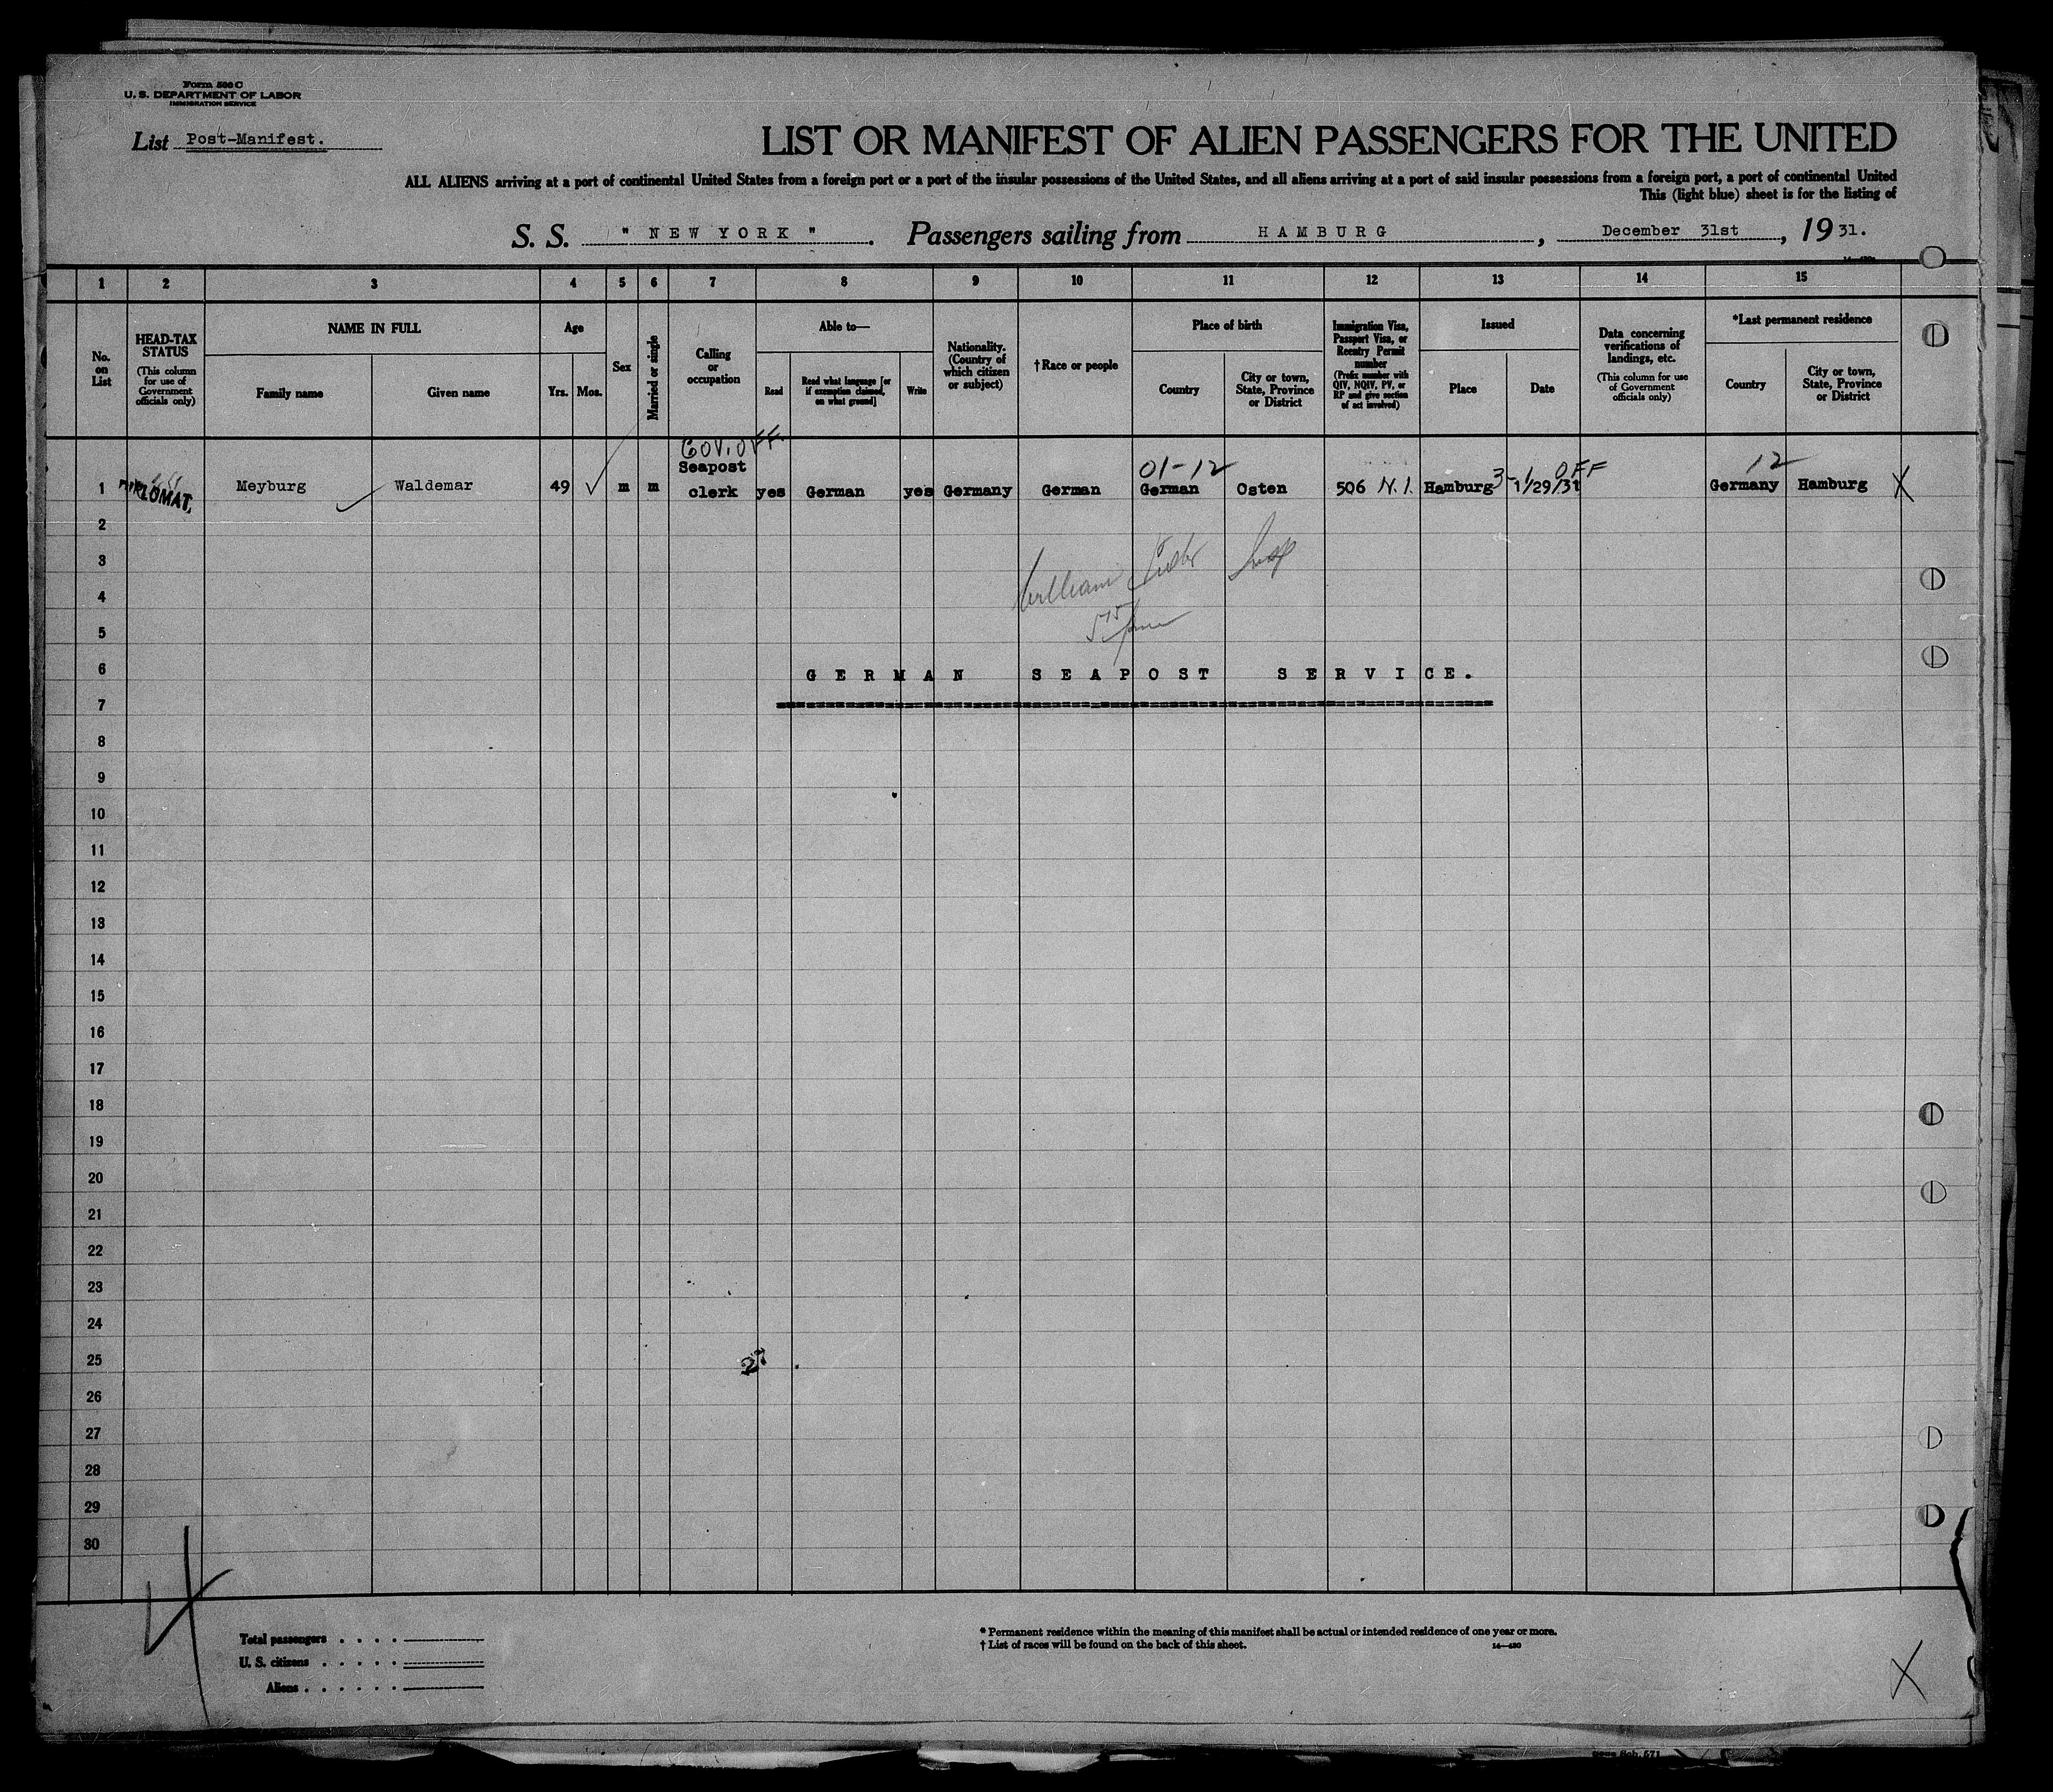 Form 500 C
U. S. DEPARTMENT OF LABOR
IMMIGRATION SERVICE
List Post-Manifest.
LIST OR MANIFEST OF ALIEN PASSENGERS FOR THE UNITED
ALL ALIENS arriving at a port of continental United States from a foreign port or a port of the insular possessions of the United States, and all aliens arriving at a port of said insular possessions from a foreign port, a port of continental United
This (light blue) sheet is for the listing of
S. S. " NEW YORK " . Passengers sailing from HAMBURG , December 31st , 19 31.
1 2 3 4 5 6 7 8 9 10 11 12 13 14 15
No. on List
HEAD-TAX STATUS
(This column for use of Government officials only)
NAME IN FULL
Family name
Given name
Age
Yrs.
Mos.
Sex
Married or single
Calling or occupation
Able to—
Read
Read what language [or if exemption claimed, on what ground]
Write
Nationality. (Country of which citizen or subject)
† Race or people
Place of birth
Country
City or town, State, Province or District
Immigration Visa, Passport Visa, or Reentry Permit number
(Prefix number with QIV, NQIV, PV, or RP and give section of act involved)
Issued
Place
Date
Data concerning verifications of landings, etc.
(This column for use of Government officials only)
*Last permanent residence
Country
City or town, State, Province or District
GOV. OFF.
01-12
3-
OFF
12
1 DIPLOMAT, Meyburg Waldemar 49 m m Seapost clerk yes German yes Germany German German Osten 506 N.I. Hamburg Germany Hamburg X
2
3
William
4
5
6 GERMAN SEAPOST SERVICE.
7
8
9
10
11
12
13
14
15
16
17
18
19
20
21
22
23
24
25
26
27
28
29
30
Total passengers . . . .
U. S. citizens . . . . .
Aliens . . . . . .
* Permanent residence within the meaning of this manifest shall be actual or intended residence of one year or more.
† List of races will be found on the back of this sheet.
14—430
X